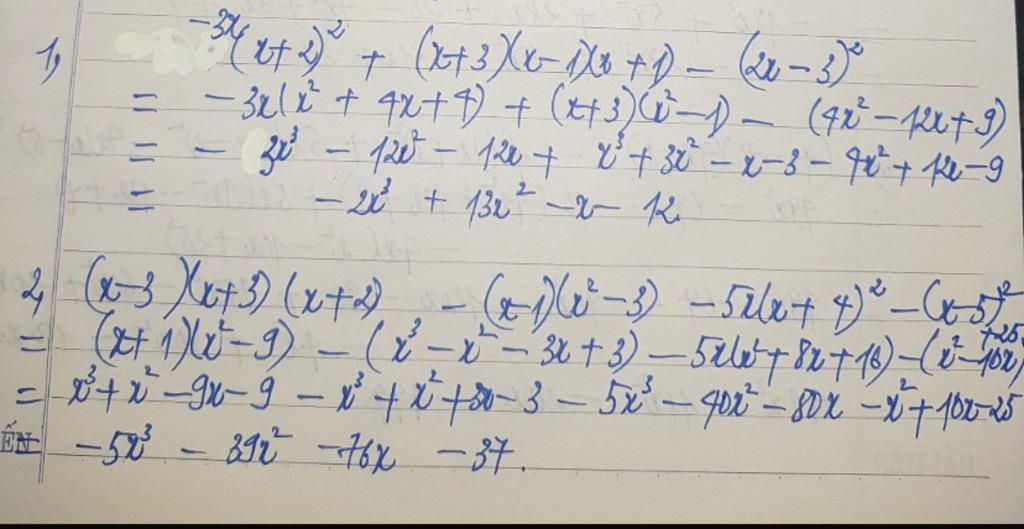 1, -3x(x+2)² + (x+3)(x-1)(x+1) - (2x-3)²
= -3x(x² + 4x+4) + (x+3)(x²-1) - (4x²-12x+9)
= - 3x³ - 12x² - 12x + x³ + 3x² - x - 3 - 4x² + 12x - 9
= - 2x³ + 13x² - x - 12.
2, (x-3)(x+3)(x+2) - (x-1)(x²-3) - 5x(x+4)² - (x-5)²
= (x+1)(x²-9) - (x³ - x² - 3x + 3) - 5x(x² + 8x + 16) - (x² - 10x + 25)
= x³ + x² - 9x - 9 - x³ + x² + 3x - 3 - 5x³ - 40x² - 80x - x² + 10x - 25
= - 5x³ - 39x² - 76x - 37.